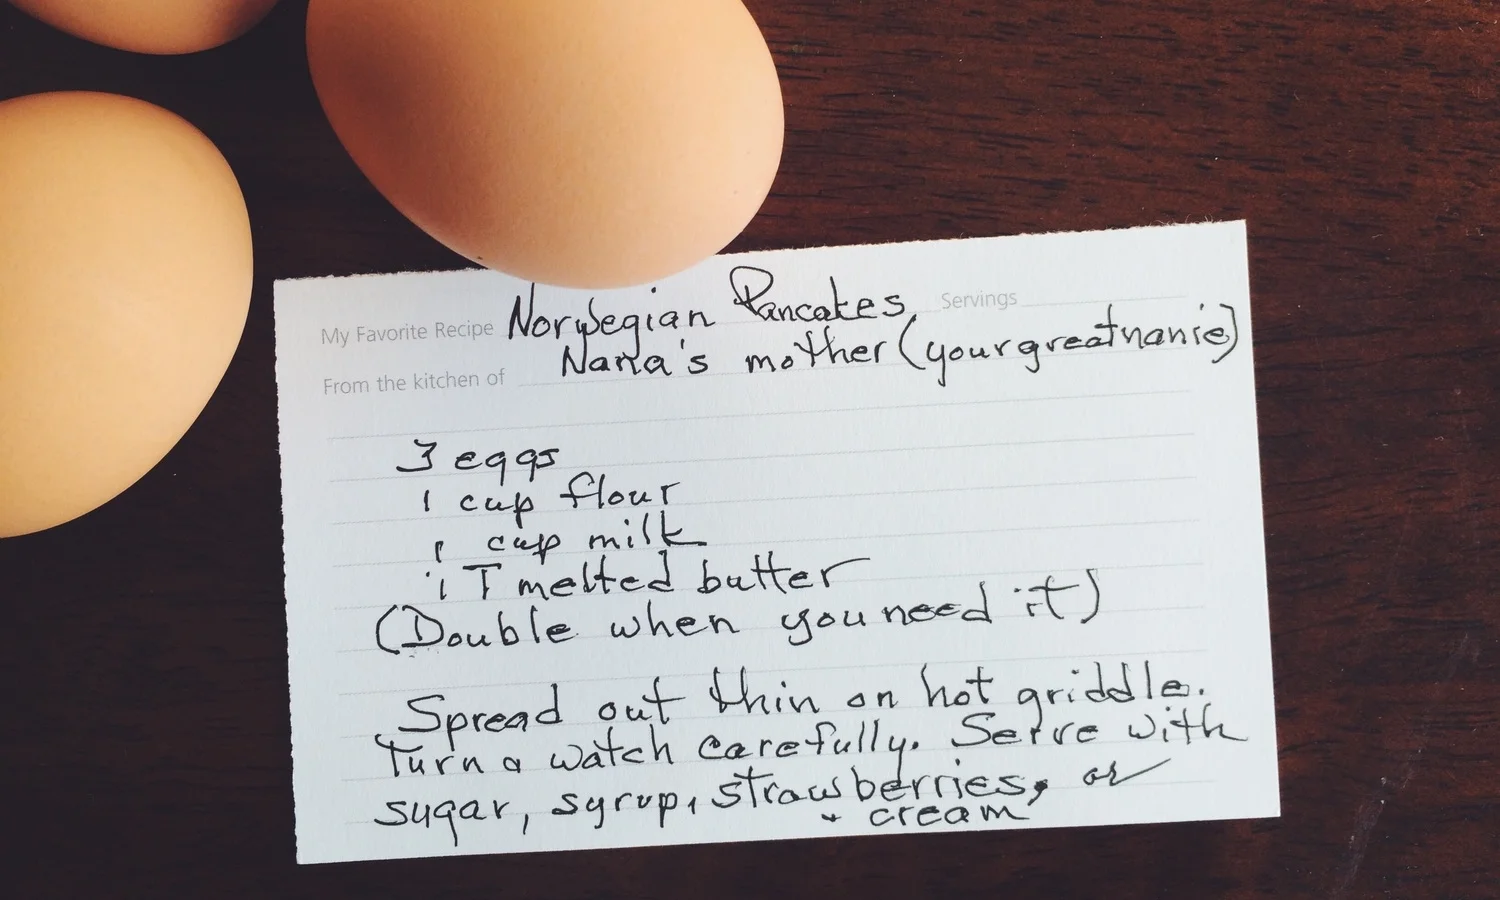 My Favorite Recipe Norwegian Pancakes Servings
From the kitchen of Nana's mother (your great nanie)
3 eggs
1 cup flour
1 cup milk
1 T melted butter
(Double when you need it)
Spread out thin on hot griddle.
Turn & watch carefully. Serve with
sugar, syrup, strawberries, or
+ cream